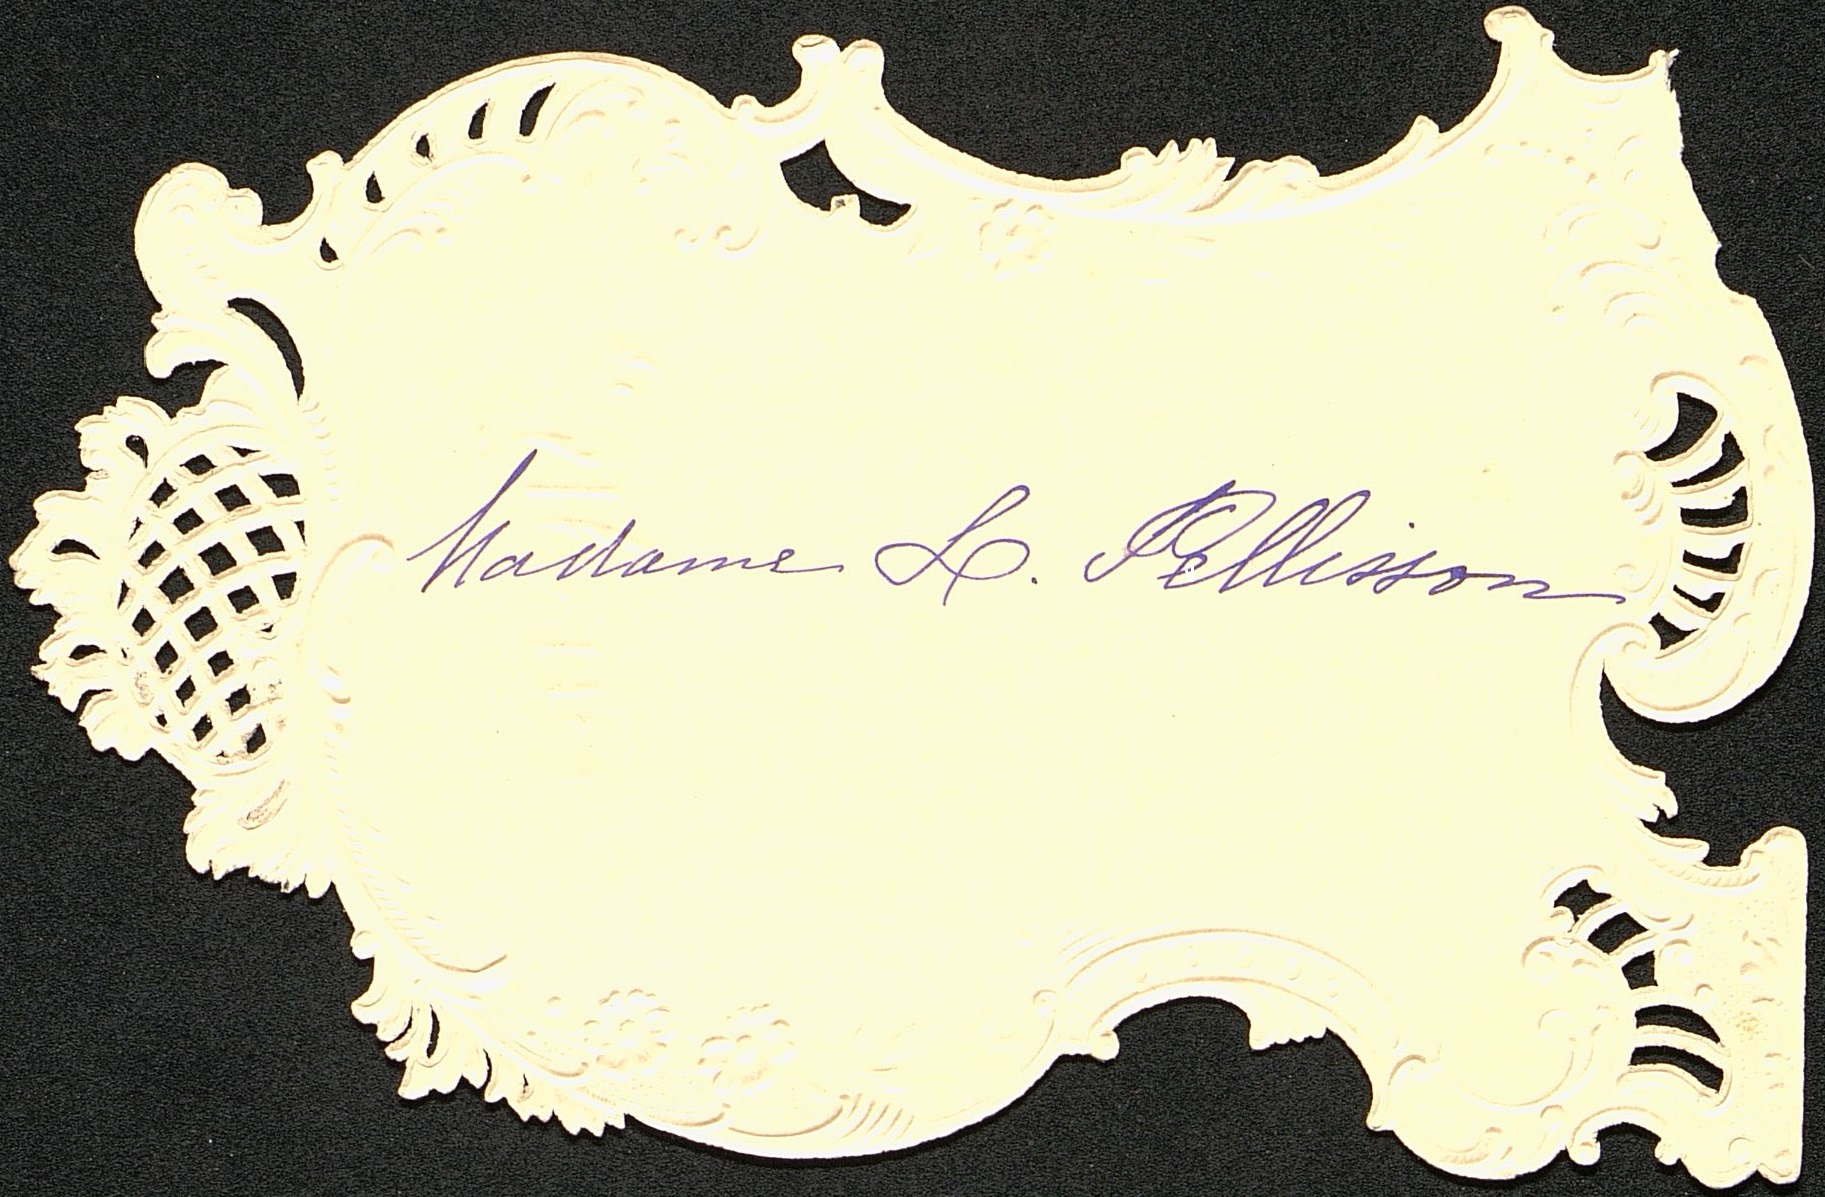 Madame L. Pellisson